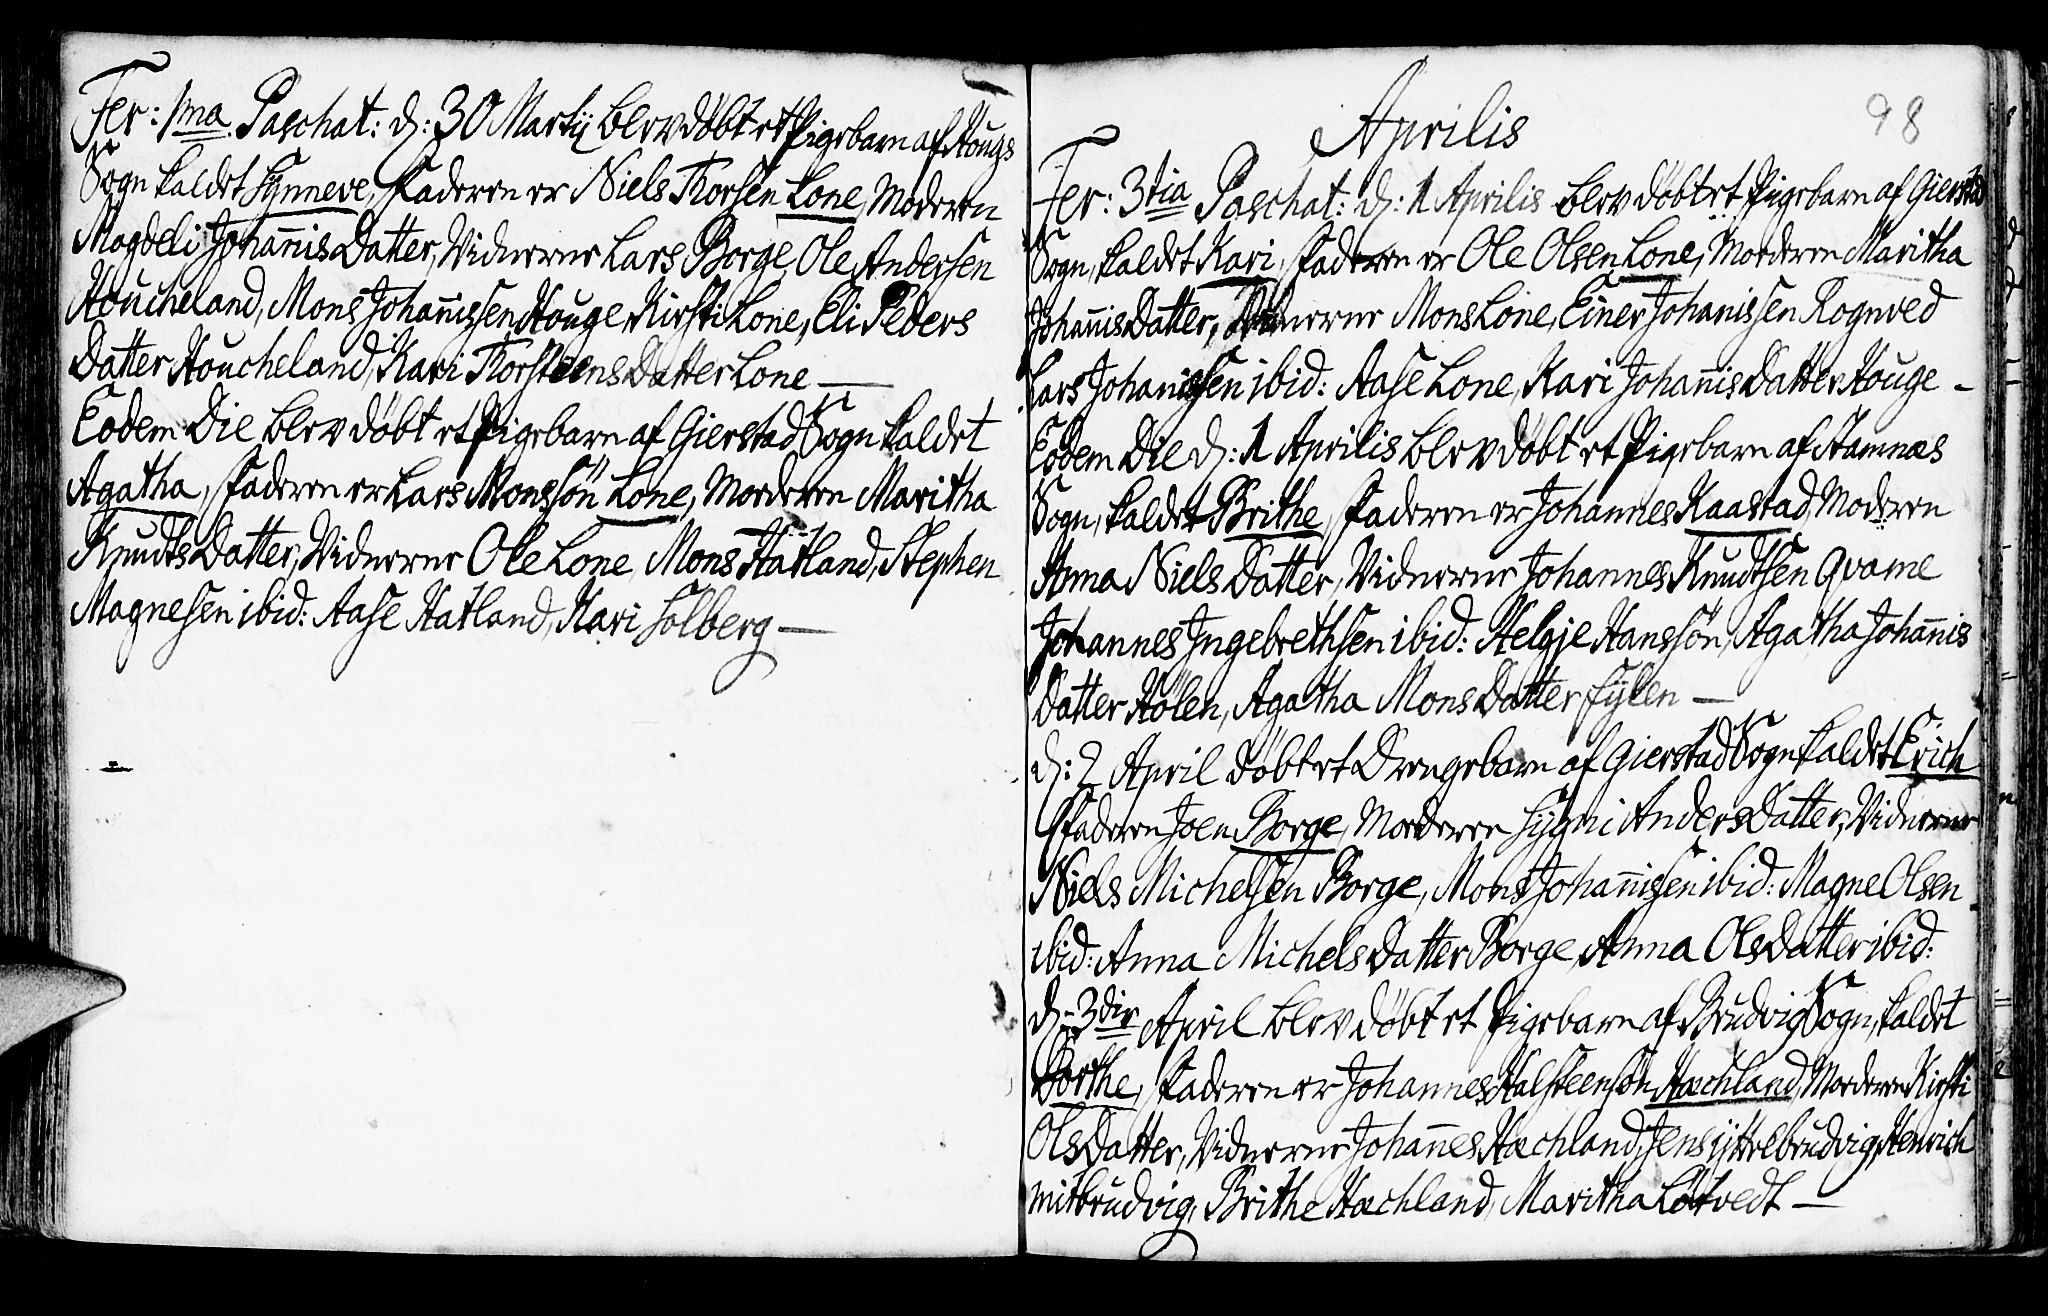 Fer: 1ma Paschat: d: 30 Martij blev døbt et Pigebarn af Hougs
Sogn kaldet Synneve, Faderen er Niels Thorsen Lone, Moderen
Magdeli Johannis Datter, Vidnerne Lars Borge, Ole Andersen
Houcheland, Mons Johannissen Houge, Kirsti Lone, Eli Peders
Datter Houcheland, Kari Thorsteens Datter Lone —
Eodem Die blev døbt et Pigebarn af Gierstad Sogn kaldet
Agatha, Faderen er Lars Monssön Lone, Moderen Maritha
Knudts Datter, Vidnerne Ole Lone, Mons Hatland, Stephen
Magnesen ibid: Aase Hatland, Kari Solberg —
98
Aprilis
Fer: 3tia Paschat: d: 1 Aprilis blev døbt et Pigebarn af Gierstad
Sogn, kaldet Kari, Faderen er Ole Olsen Lone, Moderen Maritha
Johannis Datter, Vidnerne Mons Lone, Einer Johanissen Rognved
Lars Johanissen ibid: Aase Lone, Kari Johannis Datter Houge —
Eodem Die d: 1 Aprilis blev døbt et Pigebarn af Hamnæs
Sogn, kaldet Brithe, Faderen er Johannes Kaastad, Moderen
Anna Niels Datter, Vidnerne Johannes Knudtsen Qvame
Johannes Ingebrethsen ibid: Helgje Hanssön, Agatha Johannis
Datter Hølen, Agatha Mons Datter Fylen —
d: 2 April døbt et Drengebarn af Gierstad Sogn kaldet Erich
Faderen Joen Borge, Moderen Sygni Anders Datter, Vidnerne
Niels Michelsen Borge, Mons Johannissen ibid: Magne Olsen
ibid: Anna Michels Datter Borge, Anna Ols Datter ibid:
d: 3die April blev døbt et Pigebarn af Brudvig Sogn, kaldet
Borthe, Faderen er Johannes Halsteensøn Hæchland, Moderen Kirsti
Ols Datter, Vidnerne Johannes Hæchland, Jens yttrebrudvig, Henrich
mitbrudvig, Brithe Hæchland, Maritha Løtvedt —